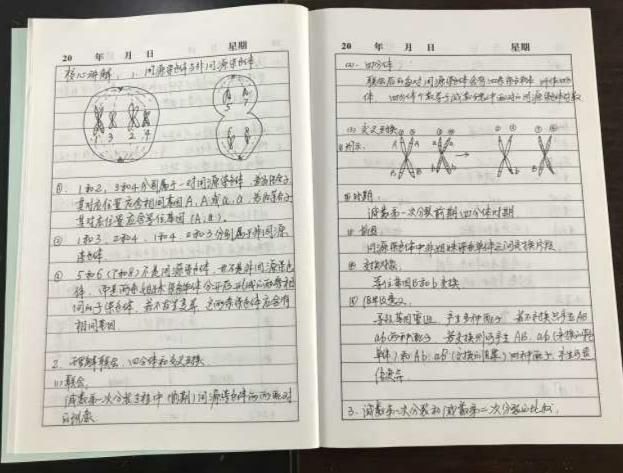 20 年 月 日 星期
核心讲解: 1. 同源染色体与非同源染色体
1 3 2 4
5 7
6 8
①. 1和2, 3和4分别属于一对同源染色体, 若为纯合子,
其对应位置应含相同基因A、A或a、a, 若为杂合子,
其对应位置应含等位基因(A、a).
② 1和3、2和4、1和4、2和3分别属于非同源
染色体.
③ 5和6(7和8)不是同源染色体, 也不是非同源染色
体, 而是两条姐妹染色单体分开后形成的两条相
同的子染色体, 若不发生变异, 这两条染色体应含有
相同基因
2. 理解联会、四分体和交叉互换
(1) 联会
减数第一次分裂过程中(前期)同源染色体两两配对
的现象
20 年 月 日 星期
(2). 四分体
联会后的每对同源染色体含有四条染色单体, 叫做四分
体. 四分体个数等于减数分裂中配对的同源染色体对数
(3) 交叉互换
① 图示:
A A a a
B b
→
② 时期:
减数第一次分裂前期四分体时期
③ 范围
同源染色体中非姐妹染色单体之间交换片段
④ 交换对象:
等位基因B和b交换
⑤ 结果及意义:
导致基因重组, 产生多种配子, 若不交换只产生AB、
ab两种配子, 若交换则可产生AB、ab(未交换的染色
单体)和Ab、aB(交换的结果)四种配子, 产生可遗
传变异.
3. 减数第一次分裂和减数第二次分裂的比较.